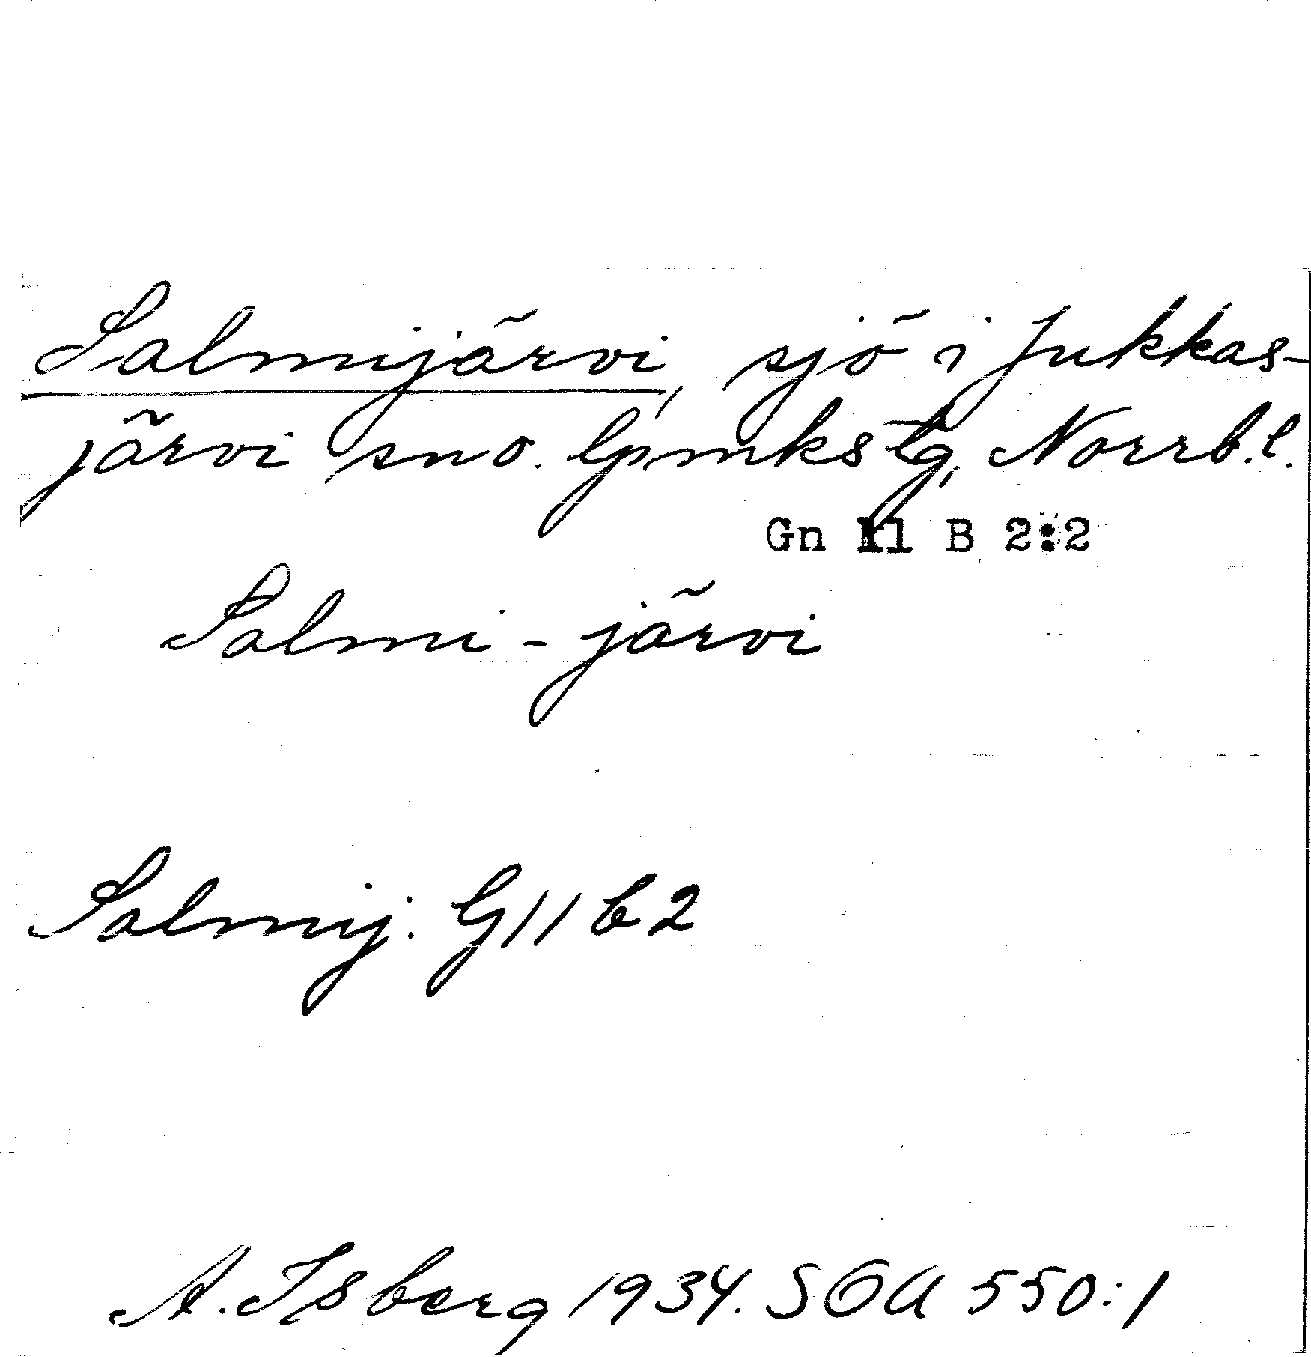 Salmijärvi, sjö i Jukkas-
järvi sno. Gpmkstg, Norrb.l.
Gn 11 B 2:2
Salmi-järvi
Salmij. G11 b2
A. Isberg 1934. SOA 550:1